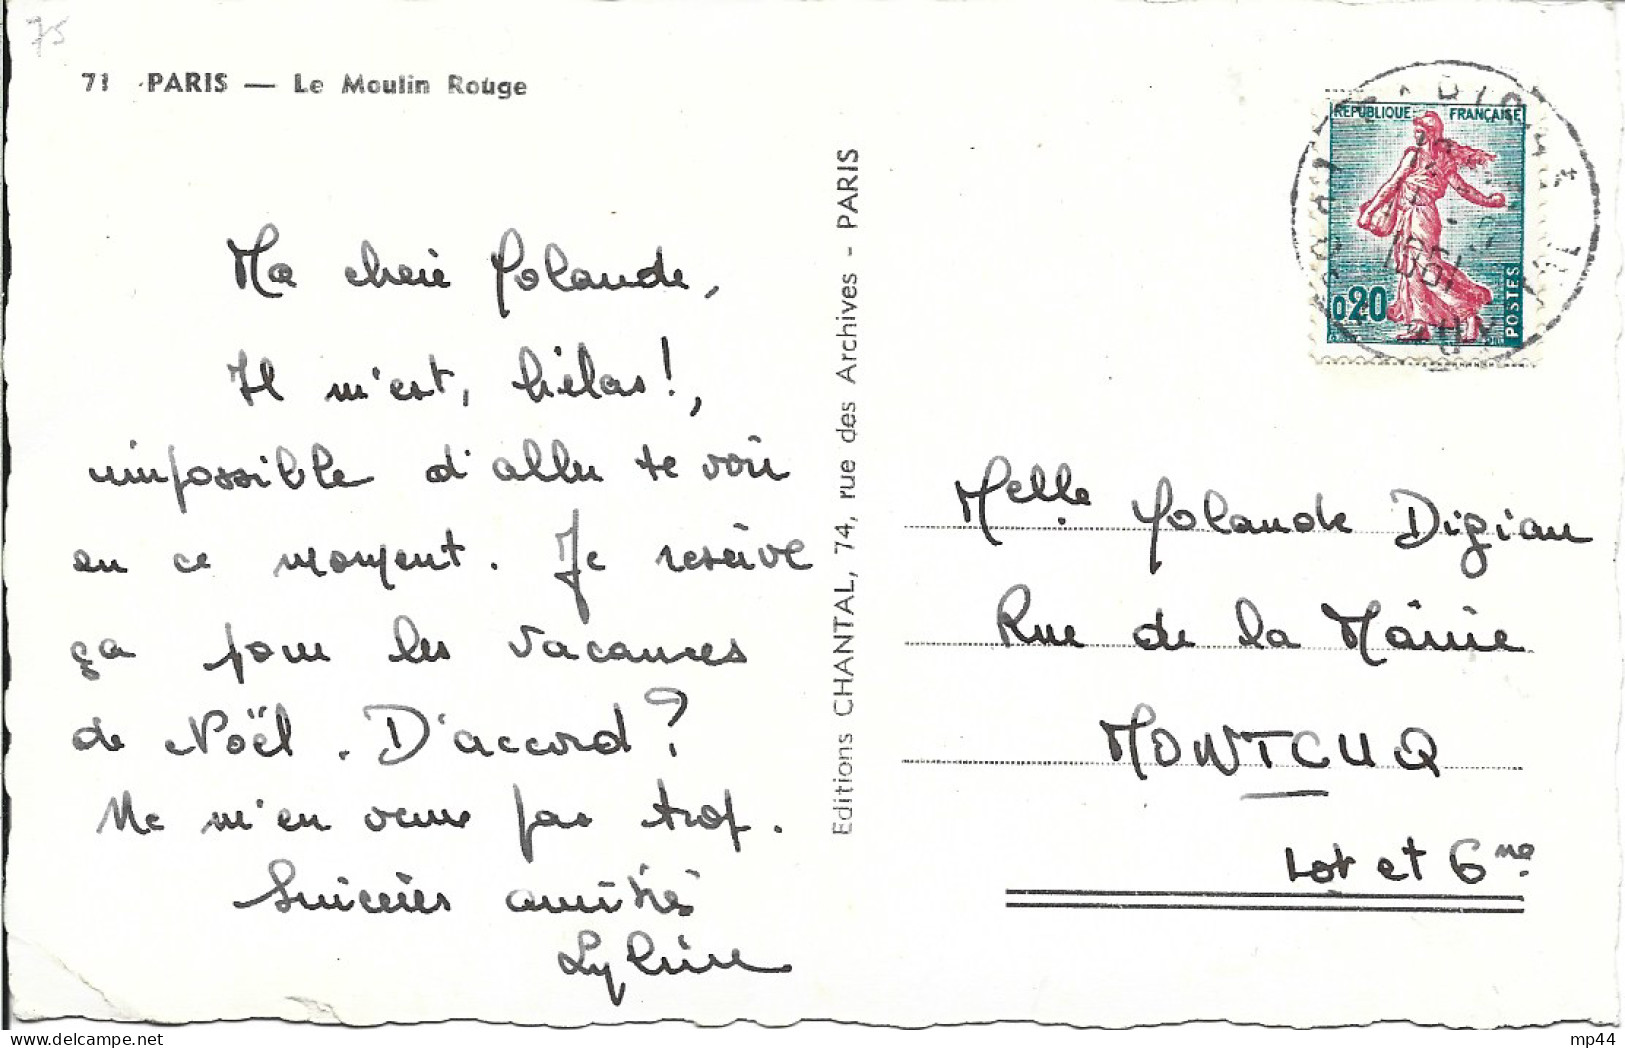 75
71 PARIS — Le Moulin Rouge
Ma chère Yolande,
Il m'est, hélas!,
impossible d'aller te voir
en ce moment. Je réserve
ça pour les vacances
de Noël. D'accord?
Ne m'en veux pas trop.
Sincères amitiés
Editions CHANTAL, 74, rue des Archives - PARIS
REPUBLIQUE FRANÇAISE
0,20
POSTES
1961
Melle Yolande Digian
Rue de la Mairie
MONTCUQ
Lot et Gne
mp44